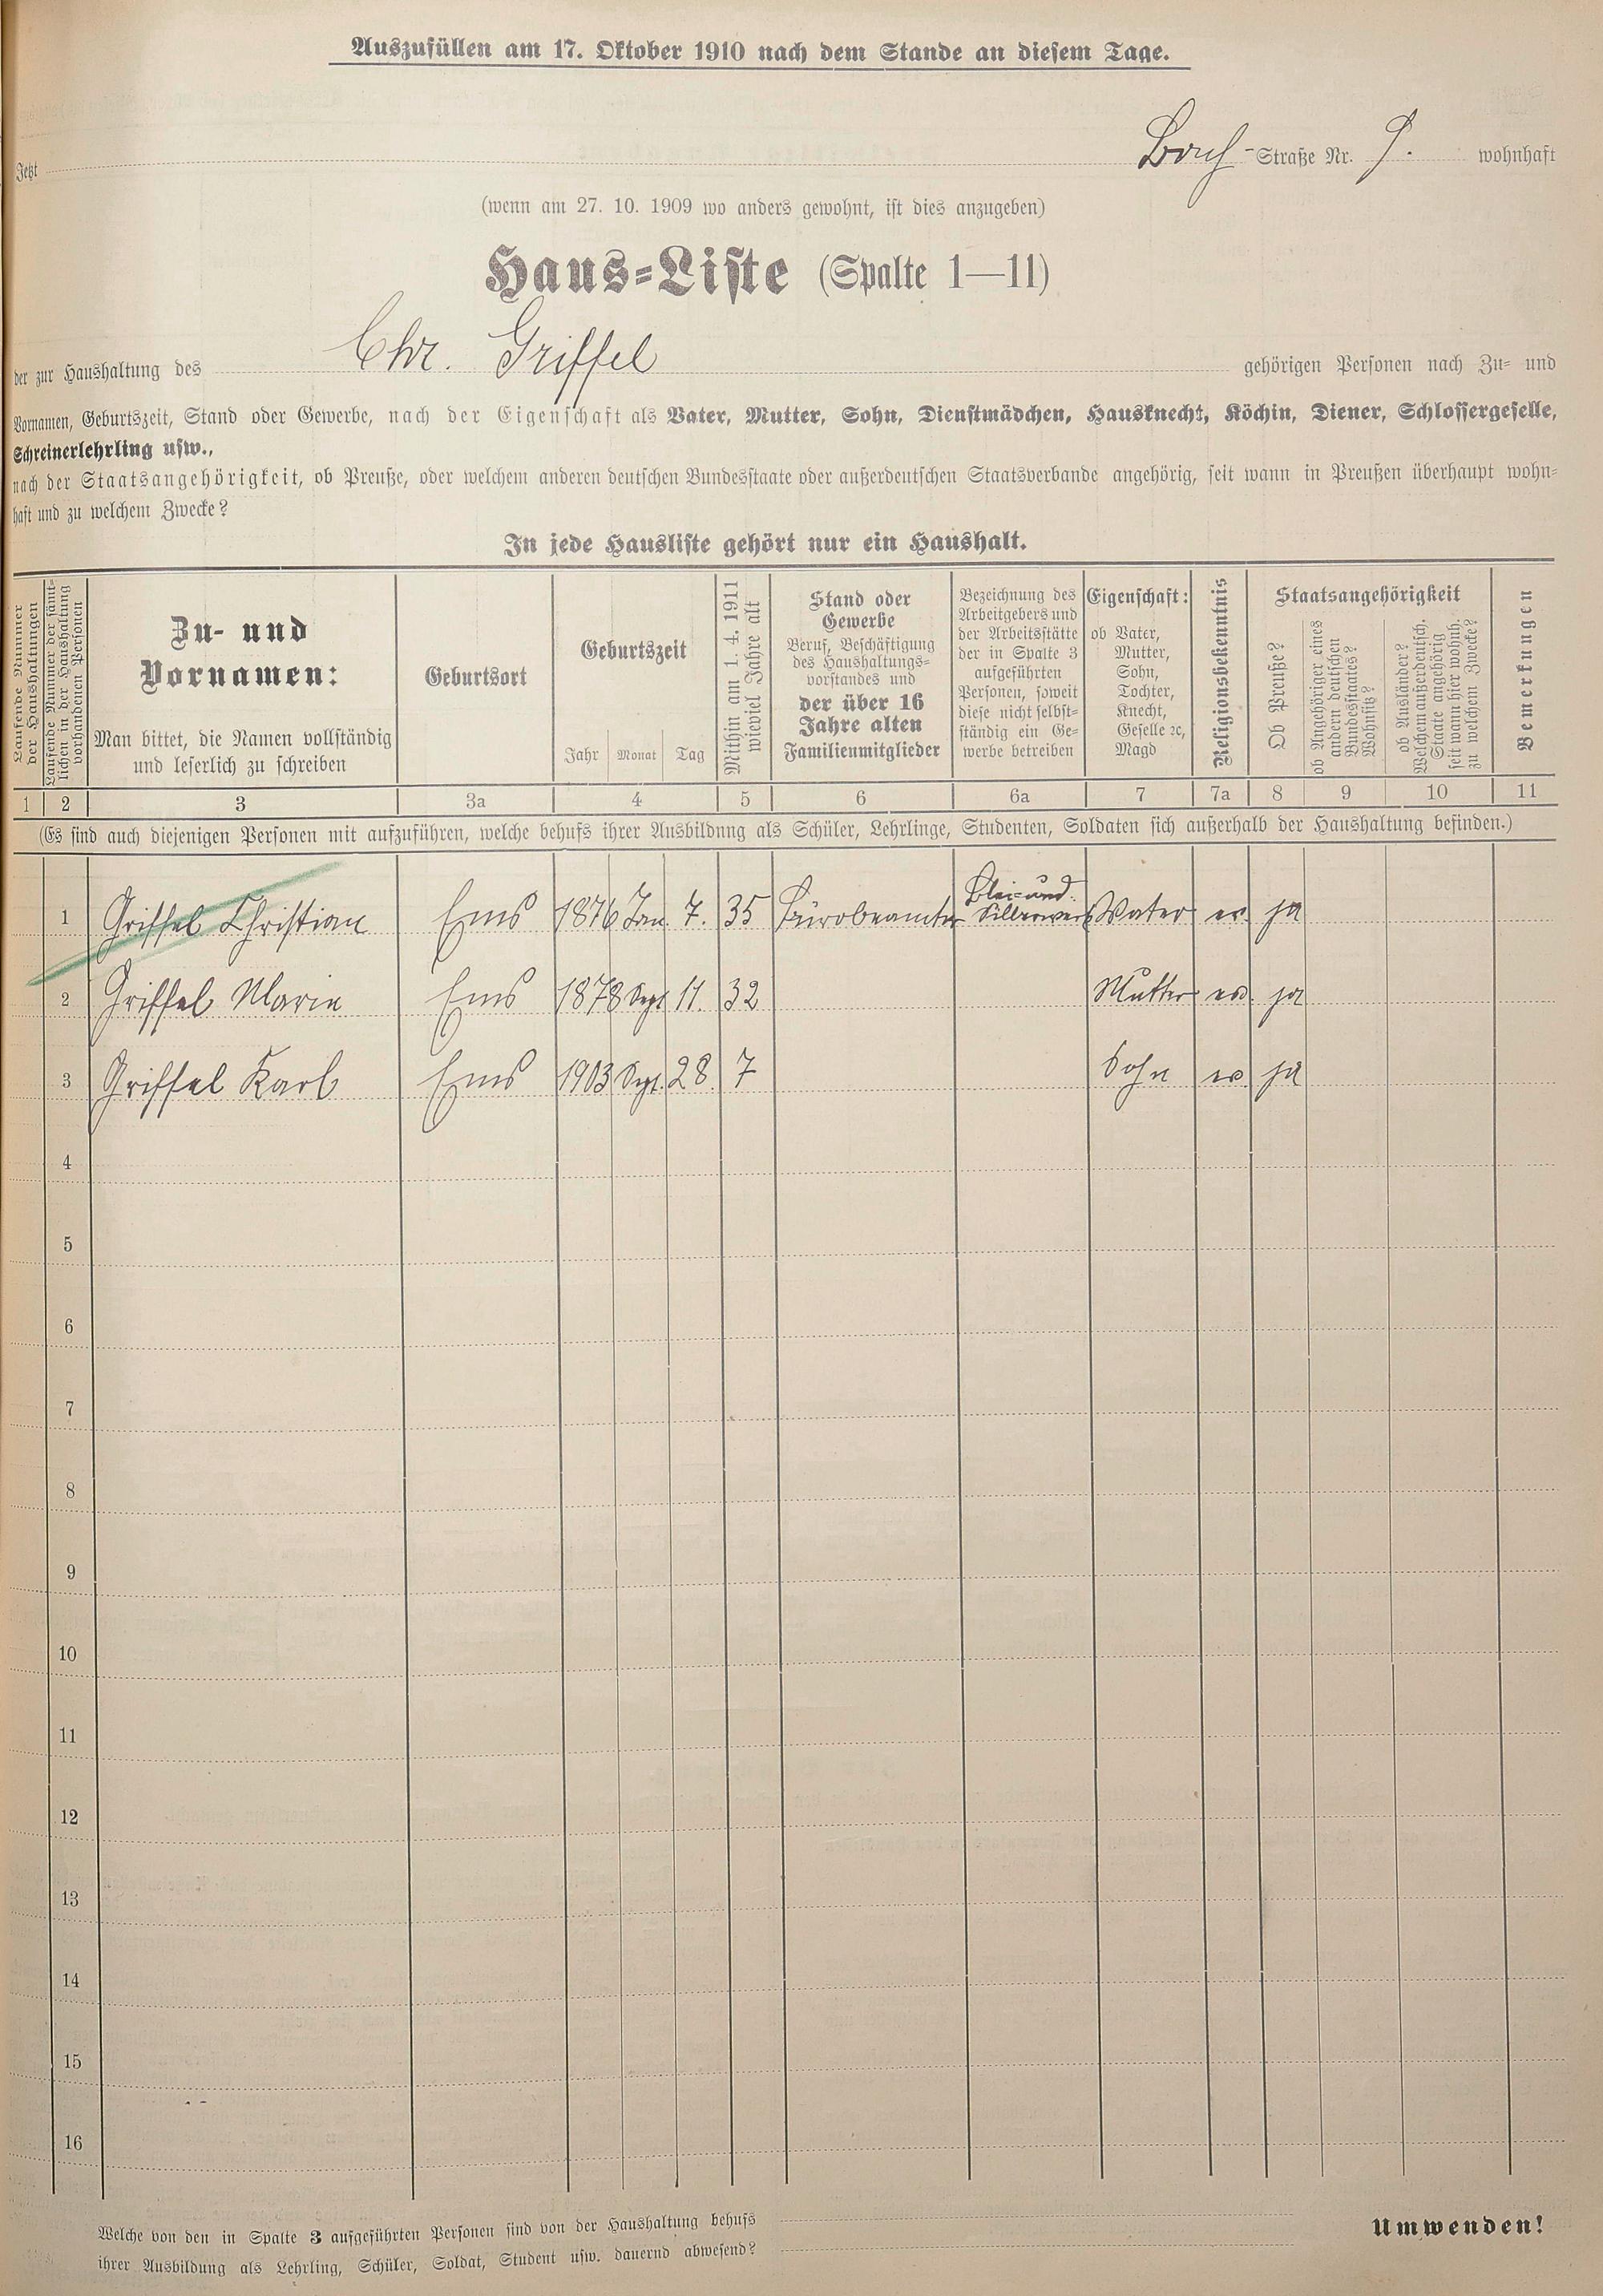 Auszufüllen am 17. Oktober 1910 nach dem Stande an diesem Tage.
Jetzt -Straße Nr. 9. wohnhaft
(wenn am 27. 10. 1909 wo anders gewohnt, ist dies anzugeben)
Haus-Liste (Spalte 1—11)
der zur Haushaltung des Chr. Griffel gehörigen Personen nach Zu- und
Vornamen, Geburtszeit, Stand oder Gewerbe, nach der Eigenschaft als Vater, Mutter, Sohn, Dienstmädchen, Hausknecht, Köchin, Diener, Schlossergeselle,
Schreinerlehrling usw.,
nach der Staatsangehörigkeit, ob Preuße, oder welchem anderen deutschen Bundesstaate oder außerdeutschen Staatsverbande angehörig, seit wann in Preußen überhaupt wohn-
haft und zu welchem Zwecke?
In jede Hausliste gehört nur ein Haushalt.
Laufende Nummer
der Haushaltungen
Laufende Nummer der sämt-
lichen in der Haushaltung
vorhandenen Personen
Zu- und
Vornamen:
Man bittet, die Namen vollständig
und leserlich zu schreiben
Geburtsort
Geburtszeit
Jahr Monat Tag
Mithin am 1. 4. 1911
wieviel Jahre alt
Stand oder
Gewerbe
Beruf, Beschäftigung
des Haushaltungs-
vorstandes und
der über 16
Jahre alten
Familienmitglieder
Bezeichnung des
Arbeitgebers und
der Arbeitsstätte
der in Spalte 3
aufgeführten
Personen, soweit
diese nicht selbst-
ständig ein Ge-
werbe betreiben
Eigenschaft:
ob Vater,
Mutter,
Sohn,
Tochter,
Knecht,
Geselle ꝛc,
Magd
Religionsbekenntnis
Staatsangehörigkeit
Ob Preuße?
ob Angehöriger eines
andern deutschen
Bundesstaates?
Wohnsitz?
ob Ausländer?
Welchem außerdeutsch.
Staate angehörig
seit wann hier wohnh.
zu welchem Zwecke?
Bemerkungen
1 2 3 3a 4 5 6 6a 7 7a 8 9 10 11
(Es sind auch diejenigen Personen mit aufzuführen, welche behufs ihrer Ausbildung als Schüler, Lehrlinge, Studenten, Soldaten sich außerhalb der Haushaltung befinden.)
1 Griffel Christian Ems 1876 Jan. 7. 35 Bürobeamter Blei- und Silberwerk Vater ev. ja
2 Griffel Marie Ems 1878 Sept 11. 32 Mutter ev. ja
3 Griffel Karl Ems 1903 Sept. 28. 7 Sohn ev ja
4
5
6
7
8
9
10
11
12
13
14
15
16
Welche von den in Spalte 3 aufgeführten Personen sind von der Haushaltung behufs
ihrer Ausbildung als Lehrling, Schüler, Soldat, Student usw. dauernd abwesend?
Umwenden!